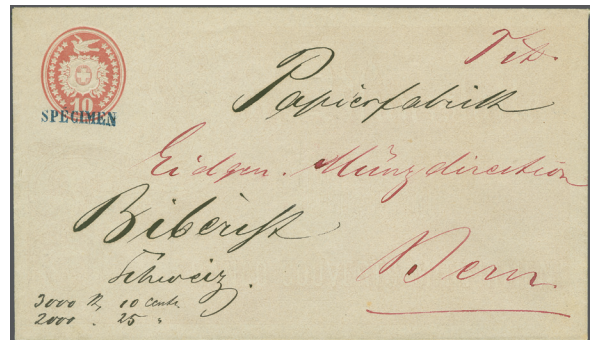 10
SPECIMEN
Tit.
Papierfabrik
Eidgen. Münzdirection
Biberist
Schweiz.
Bern.
3000 N. 10 Cents.
2000 " 25 "